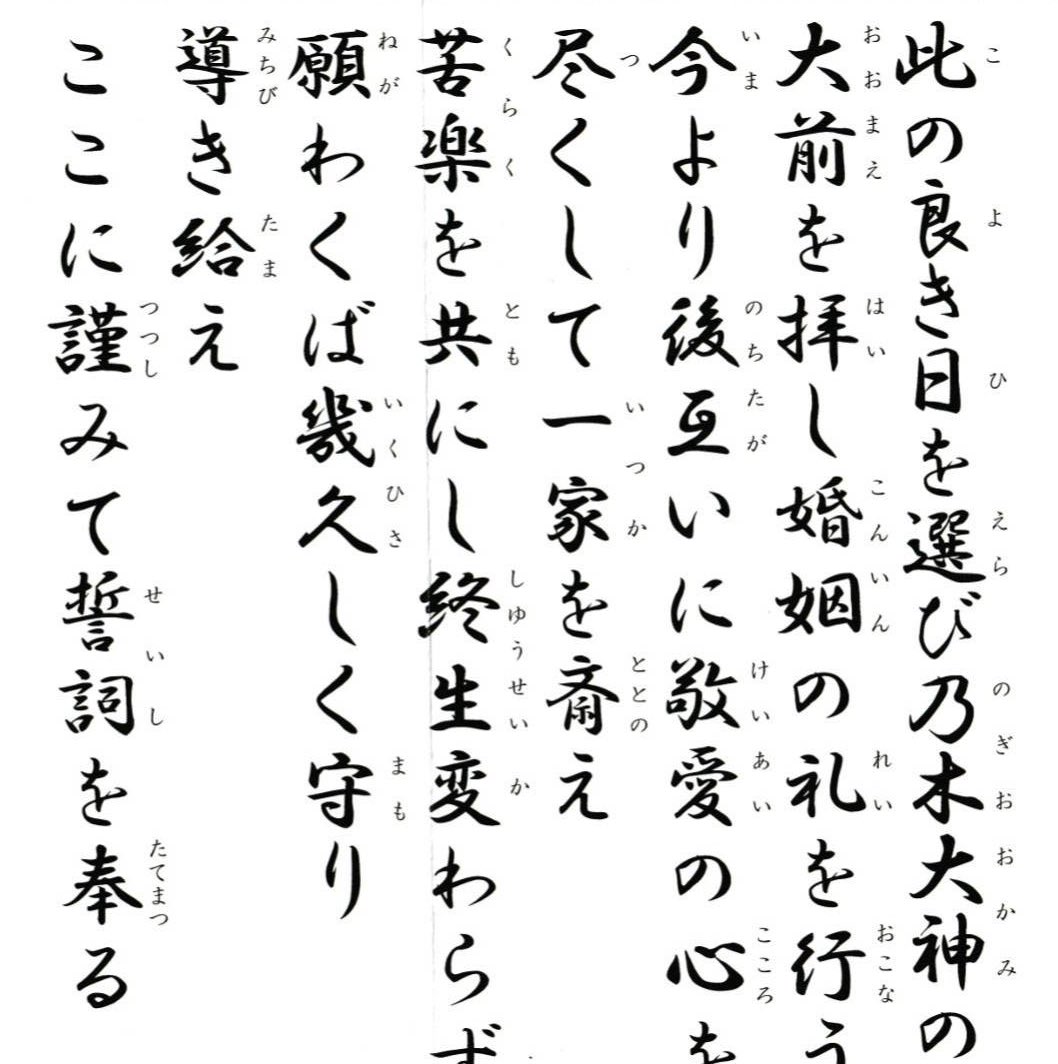 此の良き日を選び乃木大神の
大前を拝し婚姻の礼を行う
今より後互いに敬愛の心を
尽くして一家を斎え
苦楽を共にし終生変わらず
願わくば幾久しく守り
導き給え
ここに謹みて誓詞を奉る